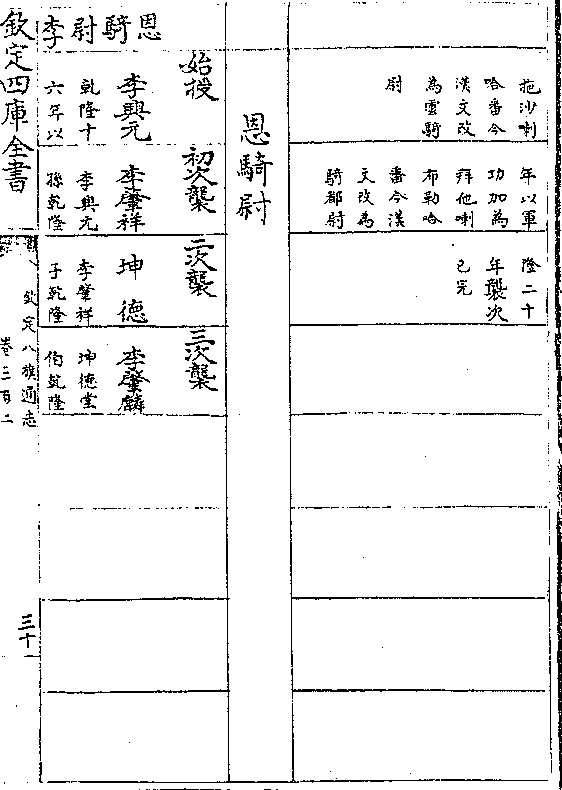 拖沙喇
哈番今
漢文改
為雲騎
尉
年以軍
功加為
拜他喇
布勒哈
番今漢
文改為
騎都尉
隆二十
年襲次
已完
恩騎尉
恩騎尉李
始授
李興元
乾隆十
六年以
初次襲
李肇祥
李興元
孫乾隆
二次襲
坤德
李肇祥
子乾隆
三次襲
李肇麟
坤德堂
伯乾隆
欽定四庫全書
欽定八旗通志
卷三百二
三十